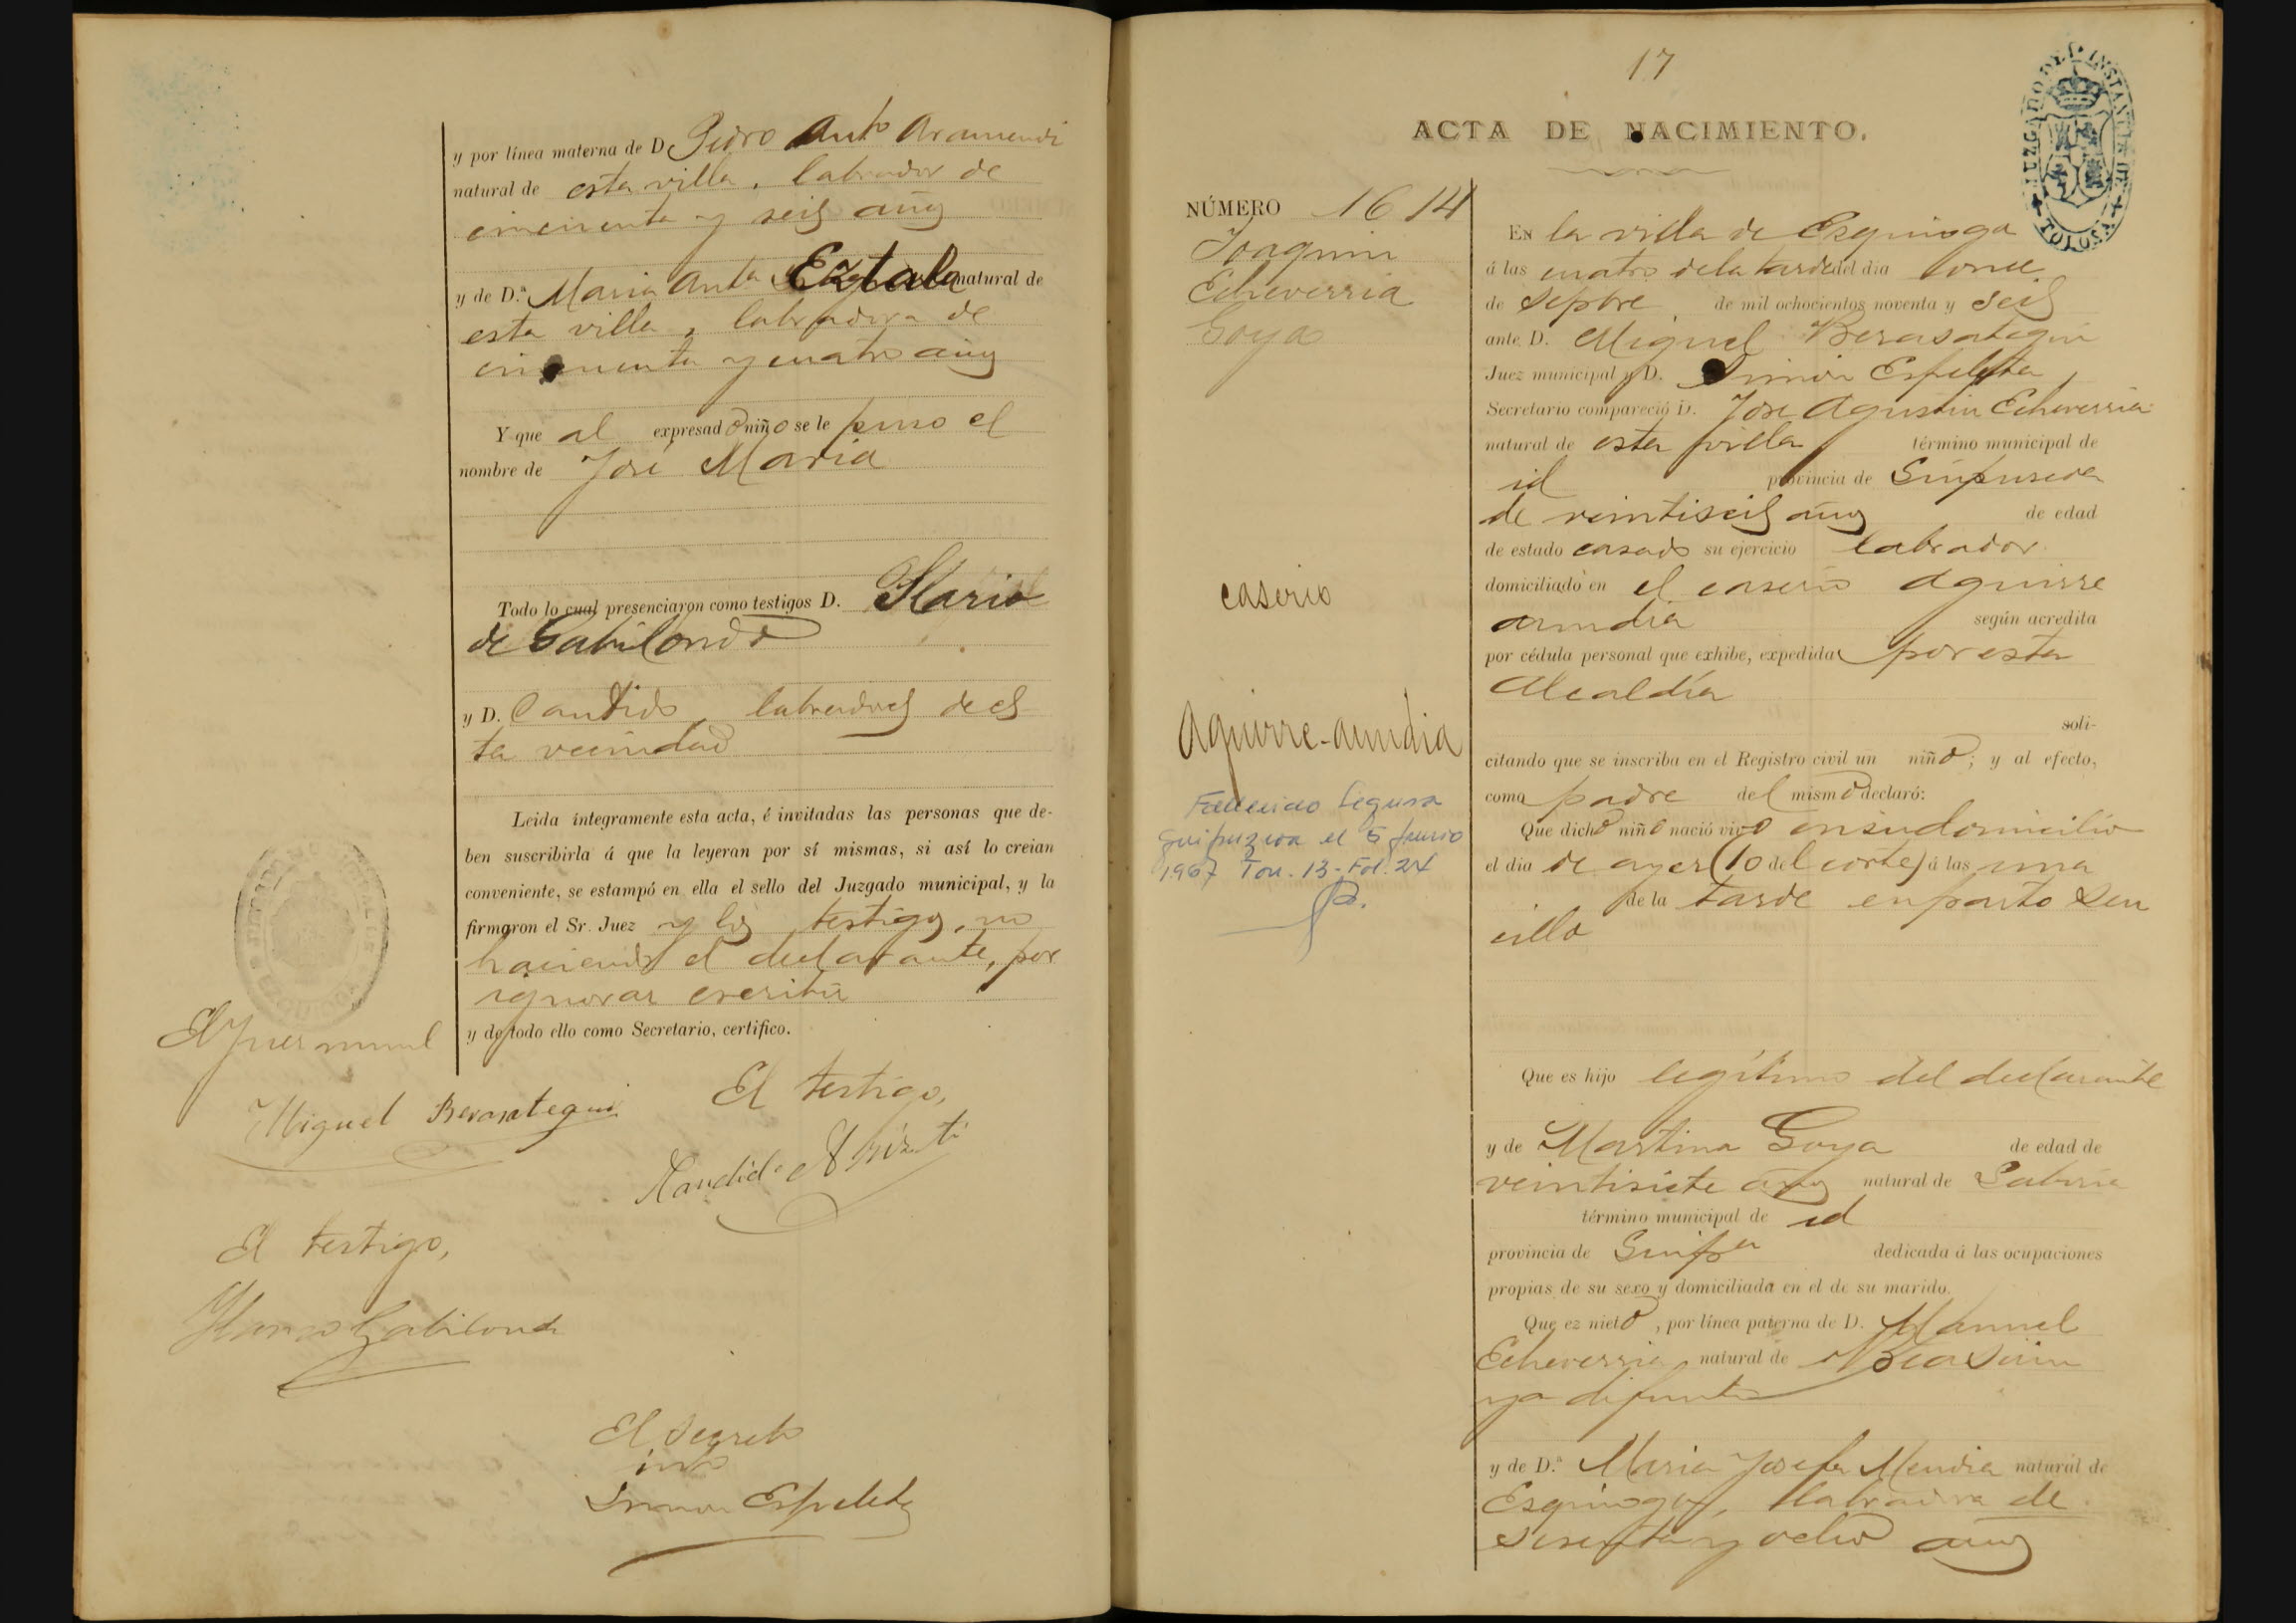 y por línea materna de D Pedro Anto Aramendi
natural de esta villa, labrador de
cincuenta y seis años
y de D.ª Maria Anta Eztala natural de
esta villa, labradora de
cincuenta y cuatro años
Y que al expresado niño se le puso el
nombre de José Maria
Todo lo cual presenciaron como testigos D. Ilario
de Gabilondo
y D. Candido labradores de es
ta vecindad
Leida íntegramente esta acta, é invitadas las personas que de-
ben suscribirla á que la leyeran por sí mismas, si así lo creian
conveniente, se estampó en ella el sello del Juzgado municipal, y la
firmaron el Sr. Juez y los testigos, no
haciendo el declarante, por
ignorar escribir
y de todo ello como Secretario, certifico.
El Juez
Miguel Berasategui
El testigo,
Kandido
El testigo,
Ilario Gabilondo
El Secreto
Simon Espeleta
17
ACTA DE NACIMIENTO.
JUZGADO DE INSTANCIA DE TOLOSA
NÚMERO 16 14
Joaquin
Echeverria
Goya
caserio
Aguirre-aundia
Fallecido Segura
Guipuzcoa el 5 Junio
1967 Tom. 13-Fol. 24
En la villa de Ezquioga
á las cuatro de la tarde del dia once
de Sepbre de mil ochocientos noventa y seis
ante D. Miguel Berasategui
Juez municipal y D. Simon Espeleta,
Secretario compareció D. José Agustin Echeverria
natural de esta villa término municipal de
id provincia de Guipuzcoa
de veintiseis años de edad
de estado casado su ejercicio labrador
domiciliado en el caserio Aguirre
aundia según acredita
por cédula personal que exhibe, expedida por esta
Alcaldía
soli-
citando que se inscriba en el Registro civil un niño; y al efecto,
como padre del mismo declaró:
Que dicho niño nació vivo en su domicilio
el dia de ayer (10 del corte) á las una
de la tarde en parto sen
cillo
Que es hijo legítimo del declarante
y de Martina Goya de edad de
veintisiete años natural de Gabiria
término municipal de id
provincia de Guipa dedicada á las ocupaciones
propias de su sexo y domiciliada en el de su marido.
Que ez nieto, por línea paterna de D. Manuel
Echeverria natural de Beasain
ya difunto
y de D.ª Maria Josefa Mendia natural de
Ezquioga, labradora de
sesenta y ocho años